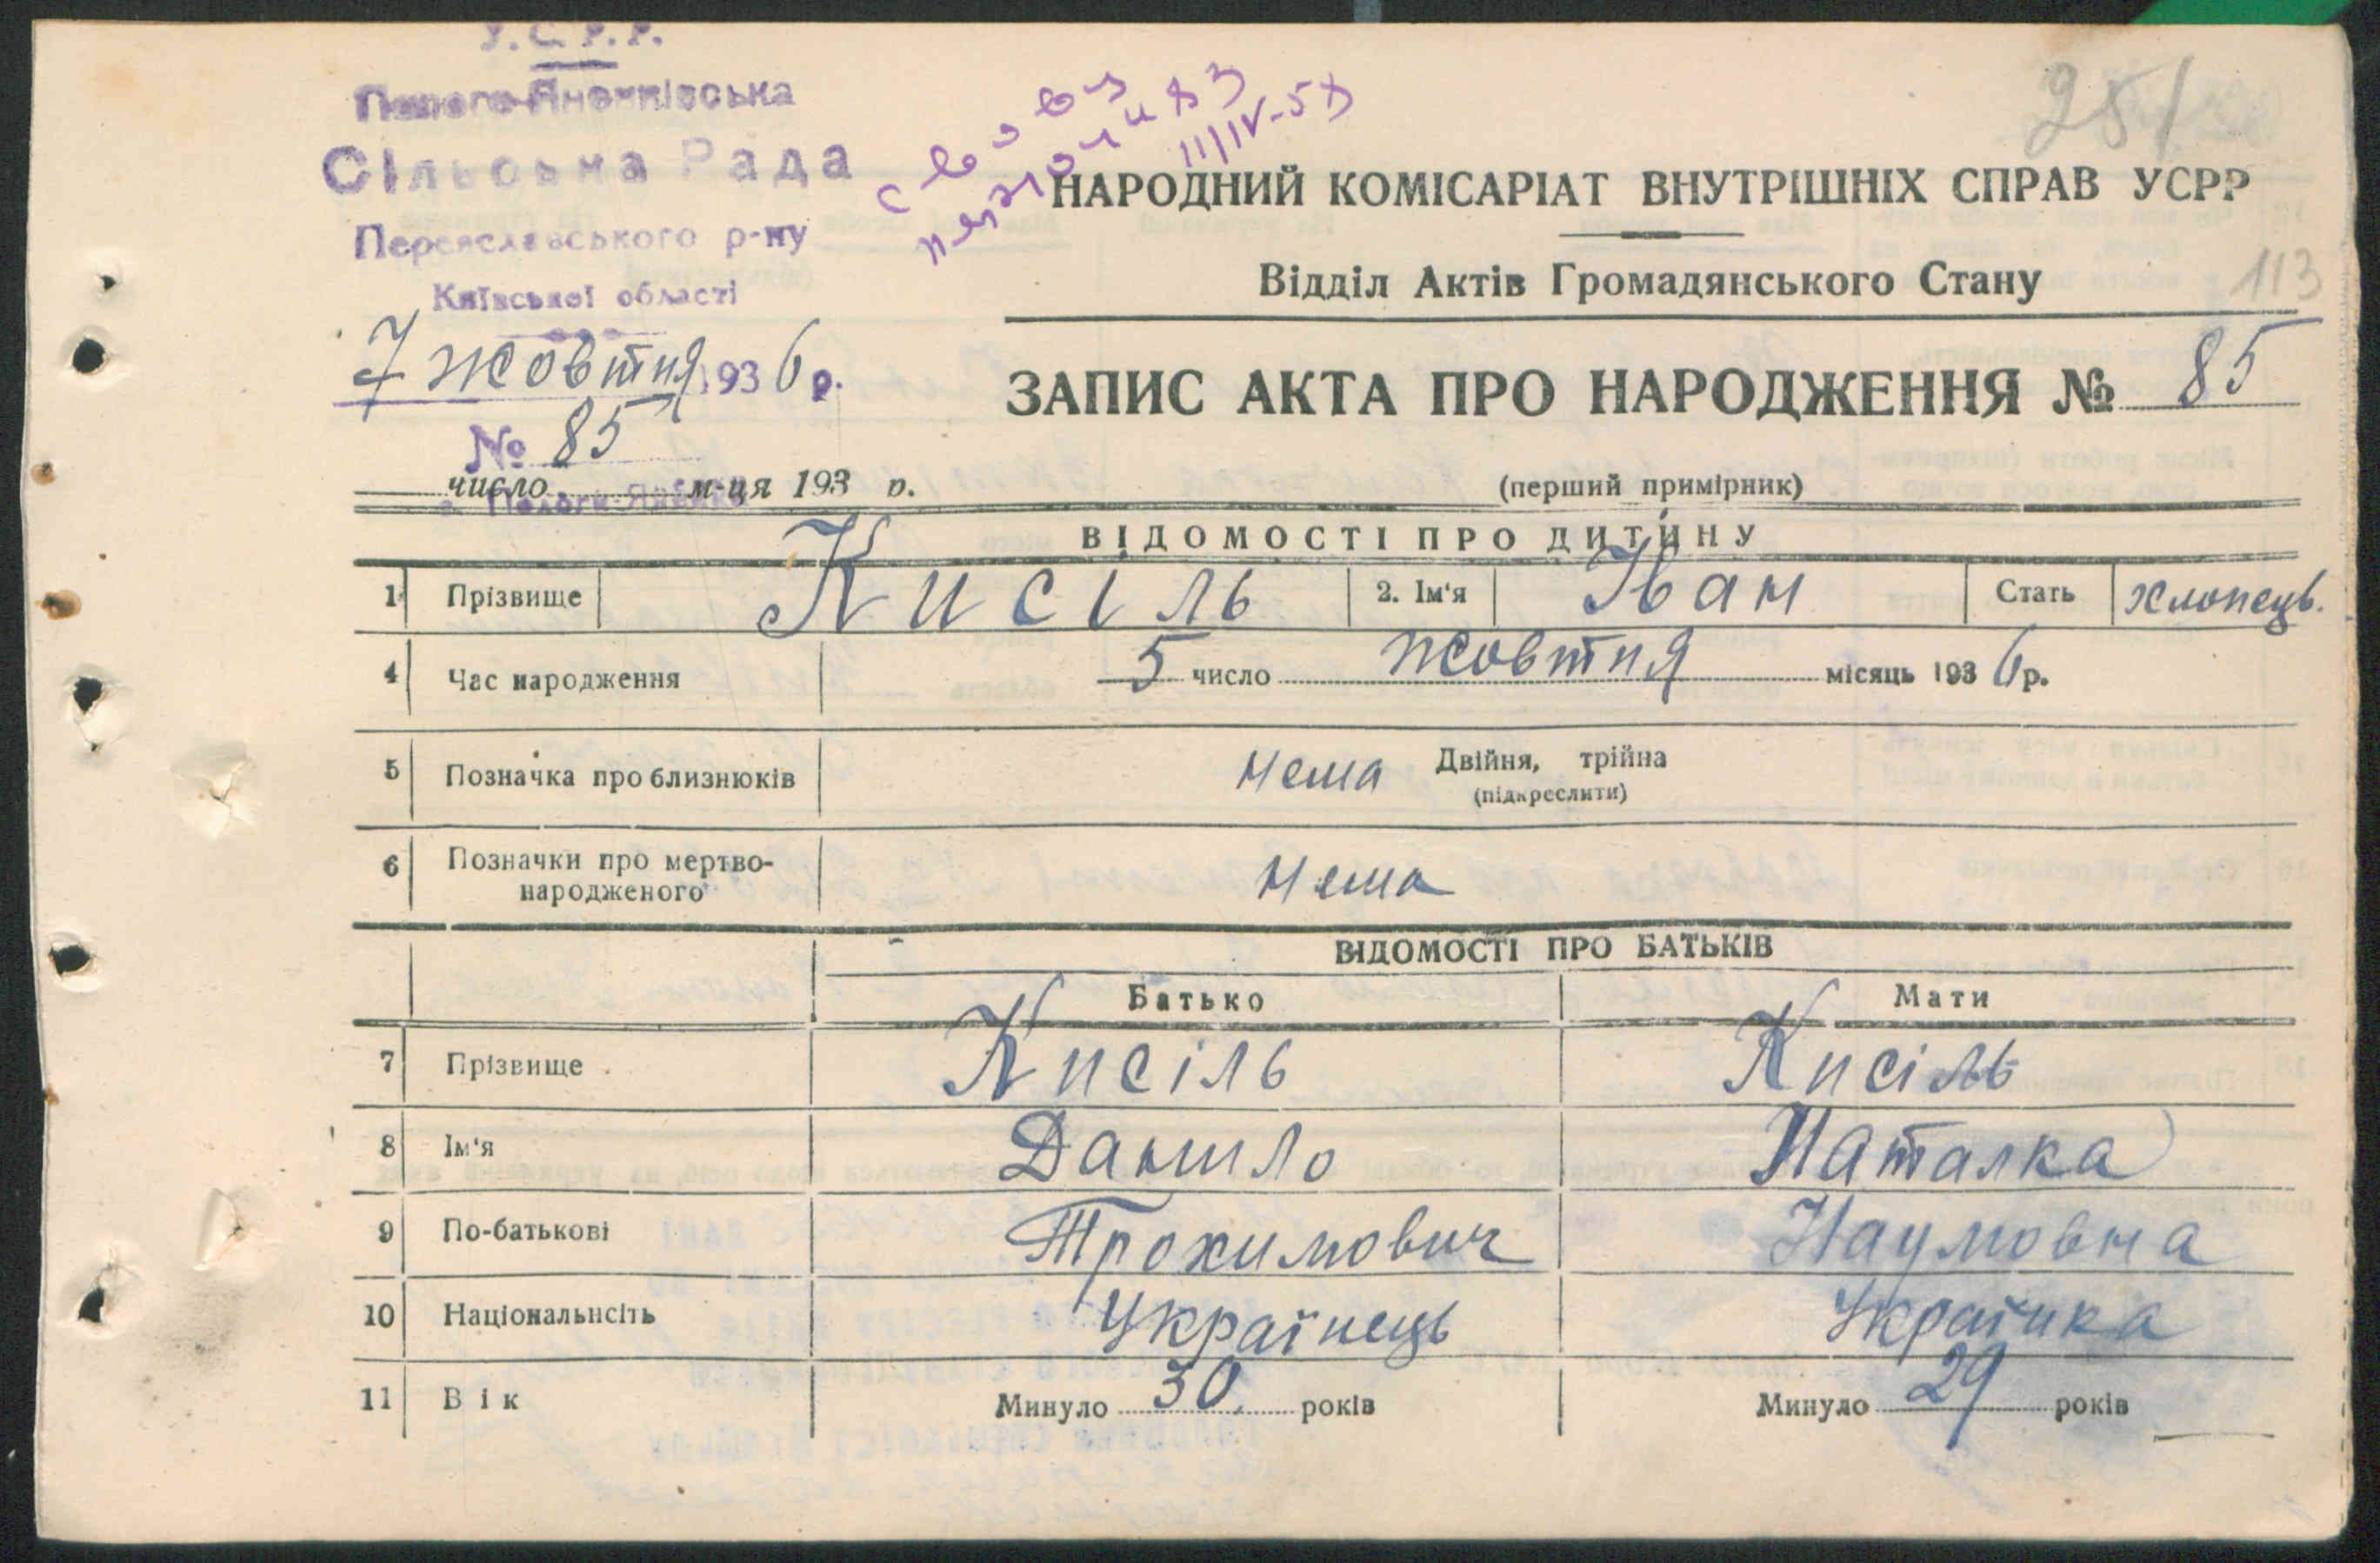 У.С.Р.Р.
Полого-Яненківська
Сільська Рада
Переяславського р-ну
Київської області
7 жовтня 1936 р.
№ 85
с. Пологи-Яненки
число м-ця 193 р.
II/IV-58
251
НАРОДНИЙ КОМІСАРІАТ ВНУТРІШНІХ СПРАВ УСРР
Відділ Актів Громадянського Стану
113
ЗАПИС АКТА ПРО НАРОДЖЕННЯ № 85
(перший примірник)
ВІДОМОСТІ ПРО ДИТИНУ
1 Прізвище Кисіль 2. Ім'я Іван Стать хлопець.
4 Час народження 5 число жовтня місяць 1936 р.
5 Позначка про близнюків нема Двійня, трійна
(підкреслити)
6 Позначки про мертво-
народженого нема
ВІДОМОСТІ ПРО БАТЬКІВ
Батько Мати
7 Прізвище Кисіль Кисіль
8 Ім'я Данило Наталка
9 По-батькові Трохимович Наумовна
10 Національнсіть Українець Українка
11 Вік Минуло 30. років Минуло 29 років